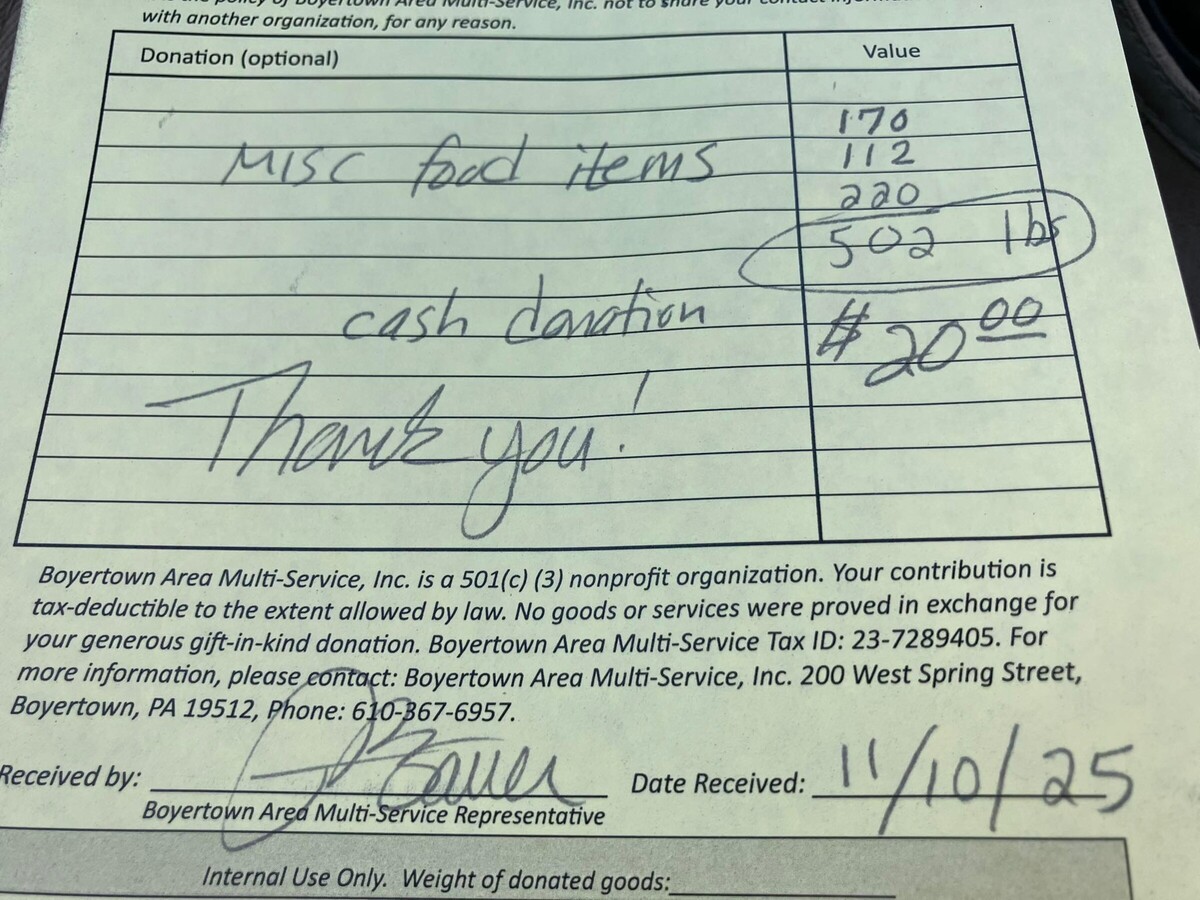 with another organization, for any reason.
Donation (optional) Value
170
MISC food items 112
220
502 lbs
cash donation $20.00
Thank you!
Boyertown Area Multi-Service, Inc. is a 501(c) (3) nonprofit organization. Your contribution is
tax-deductible to the extent allowed by law. No goods or services were proved in exchange for
your generous gift-in-kind donation. Boyertown Area Multi-Service Tax ID: 23-7289405. For
more information, please contact: Boyertown Area Multi-Service, Inc. 200 West Spring Street,
Boyertown, PA 19512, Phone: 610-367-6957.
Received by: Date Received: 11/10/25
Boyertown Area Multi-Service Representative
Internal Use Only. Weight of donated goods: